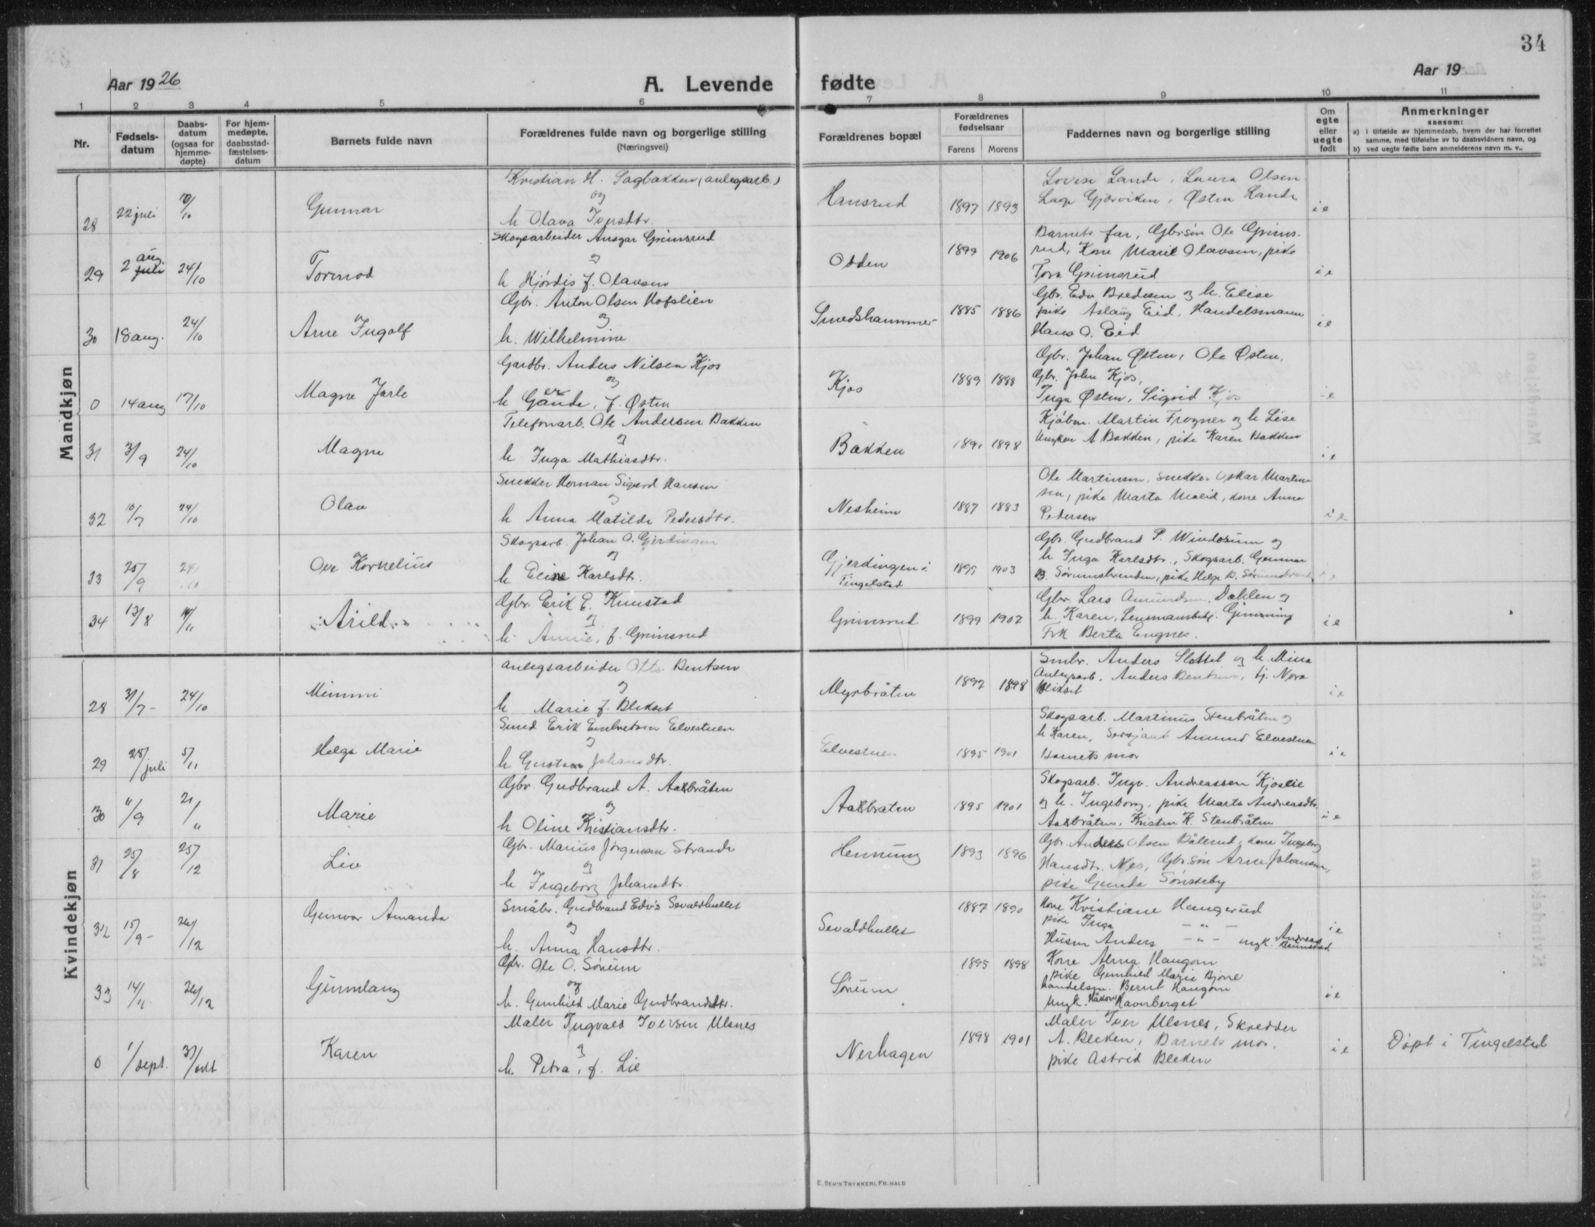 34
Aar 1926
A. Levende fødte
Aar 19
1 2 3 4 5 6 7 8 9 10 11
Nr.
Fødsels-datum
Daabs-datum (ogsaa for hjemme-døpte)
For hjem-medøpte, daabsstad-fæstelses-datum
Barnets fulde navn
Forældrenes fulde navn og borgerlige stilling
(Næringsvei)
Forældrenes bopæl
Forældrenes fødselsaar
Farens Morens
Faddernes navn og borgerlig stilling
Om egte eller uegte født
Anmerkninger
saasom:
a) i tilfælde av hjemmedaab, hvem der har forrettet samme, med tilføielse av to daabsvidners navn, og
b) ved uegte fødte barn anmelderens navn m. v.
Mandkjøn
28 22 juli 10/10 Gunnar
Kristian H. Sagbakken (anlegsarb.)
og
h. Olava Iversdtr.
Hansrud 1897 1893
Lovise Lande, Laura Olsen
Lage Gjørviken, Østen Lande
i e
29 2 aug. juli 24/10 Tormod
Skogsarbeider Ansgar Grimsrud
og
h. Hjørdis f. Olavsen
Odden 1899 1906
Barnets far, Gbr.søn Ole Grims-
rud, Kone Marie Olavsen, pike
Tora Grimsrud
i e
30 18 aug. 24/10 Arne Ingolf
Gbr. Anton Olsen Hofslien
og
h. Wilhelmine
Smedshammer 1885 1886
Gbr. Edv. Bredesen og h. Elise
pike Aslaug Eid, Handelsmann
Hans O. Eid
i e
0 14 aug 17/10 Magne Jarle
Gardbr. Anders Nilsen Kjos
og
h. Gande, f. Østen
Kjos 1889 1888
Gbr. Johan Østen, Ole Østen,
Gbr. John Kjos,
Inga Østen, Sigrid Kjos
i e
31 3/9 24/10 Magne
Telefonarb. Ole Andersen Bakken
og
h. Inga Mathiasdtr.
Bakken 1891 1898
Kjøbm. Martin Frogner og h. Lise
Ungkar A. Bakken, pike Karen Bakken
i e
32 10/7 24/10 Olav
Snekker Herman Sigurd Hansen
og
h. Anna Matilde Pedersdtr.
Nesheim 1887 1883
Ole Martinsen, snekker Oskar Martin-
sen, pike Marta Molid, kone Anna
Pedersen
i e
33 25/9 24/10 Ove Kornelius
Skogsarb. Johan O. Gjerdingen
og
h. Eline Karlsdtr.
Gjerdingen i
Tingelstad
1899 1903
Gbr. Gudbrand P. Windorum og
h. Inga Karlsdtr., Skogsarb. Gunnar
34 13/8 14/11 Arild
Gbr. Erik E. Kunstad
og
h. Annie, f. Grimsrud
Grimsrud 1899 1902
Gbr. Lars Amundsen Dahlen og
h. Karen, Lensmansbetj. Gimming
Frk Berta Engnes.
i e
Kvindekjøn
28 31/7 24/10 Mimmi
Anlegsarbeider Otto Bentsen
og
h. Marie f. Blekset
Myrbråten 1892 1898
Smbr. Anders Slettet og h. Mina
Anlegsarb. Anders Bentsen, tj. Nora
Blekset
i e
29 28/juli 5/11 Helga Marie
Smed Erik Embretsen Elvestuen
og
h. Gustava Johansdtr.
Elvestuen 1895 1901
Skogsarb. Martinus Stenbråten og
h. Karen, Sersjant Amund Elvestuen
Barnets mor
i e
30 11/9 21/11 Marie
Gbr. Gudbrand A. Aakbråten
og
h. Oline Kristiansdtr.
Aakbråten 1895 1901
Skogsarb. Ingv. Andreassen Kjoslie
og h. Ingeborg, pike Marta Andreasdtr.
Aakbråten, Kristen K. Stenbråten
i e
31 25/8 25/12 Liv
Gbr. Marius Jørgensen Strande
og
h. Ingeborg Johansdtr.
Hennung 1893 1896
Gbr. Anders Olsen Dålerud, kone Ingeborg
Hansdtr. Nes, Gbr. søn Arne Johansen,
pike Gunda Sønsteby
32 15/9 26/12 Gunvor Amanda
Småbr. Gudbrand Edv's Sevaldhullet
og
h. Anna Hansdtr.
Sevaldhullet 1887 1890
Kone Kristiane Haugerud
pike Inga - " -
Husm Anders - " - ungk. Andreas
i e
33 14/11 26/12 Gunnlaug
Gbr. Ole O. Sørum
og
h. Gunhild Marie Gudbrandsdtr.
Sørum 1895 1898
Kone Alma Haugom
pike Gunhild Marie Bjone
handelsm. Bernt Haugom
Ungk. Håkon Ravnberget
i e
0 1/sept. 31/okt Karen
Maler Ingvald Iversen Ulsnes
og
h. Petra, f. Lie
Nerhagen 1898 1901
Maler Iver Ulsnes, Skredder
A. Bleken, Barnets mor.
pike Astrid Bleken
i e
Døpt i Tingelstad
E. Sem's Trykkeri, Fr.hald